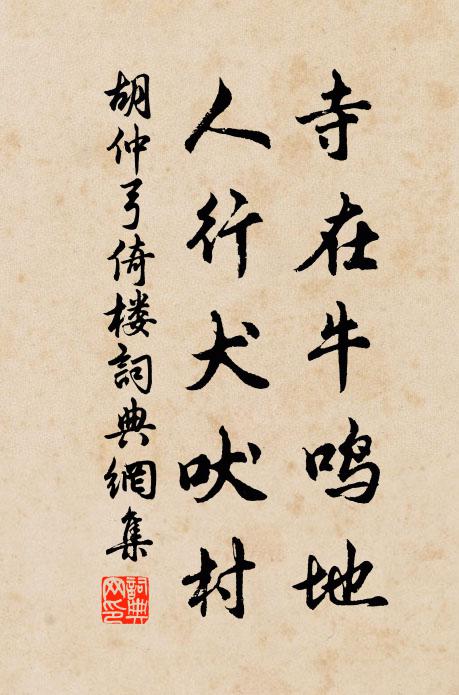 寺在牛鸣地
人行犬吠村
胡仲弓倚楼詞典網集
詞典网印